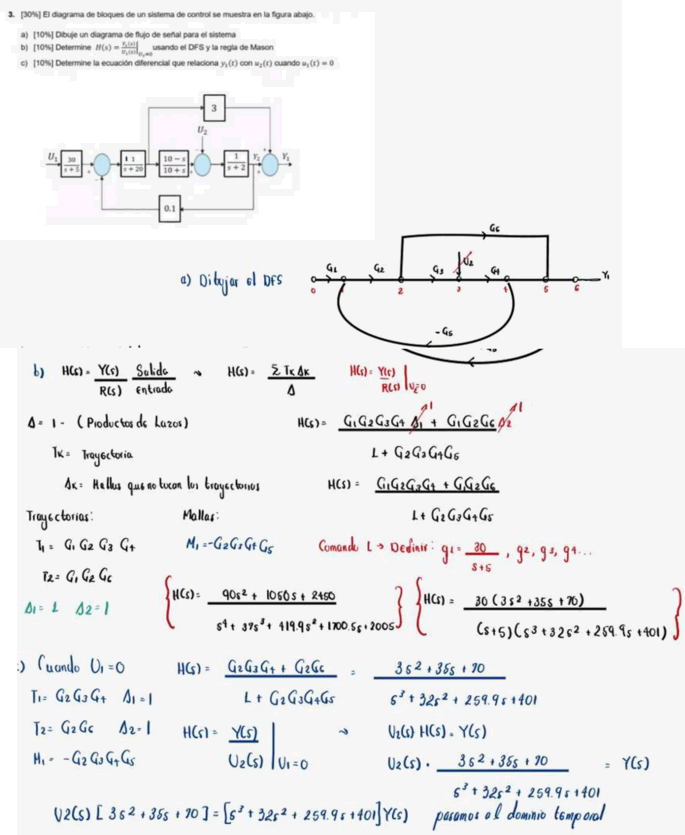 3. [30%] El diagrama de bloques de un sistema de control se muestra en la figura abajo.
a) [10%] Dibuje un diagrama de flujo de señal para el sistema
b) [10%] Determine H(s) = Y₁(s)/U₁(s)|U₂=0 usando el DFS y la regla de Mason
c) [10%] Determine la ecuación diferencial que relaciona y₁(t) con u₂(t) cuando u₁(t) = 0
3
U₂
U₁ 30/(s + 5) 11/(s + 20) (10 − s)/(10 + s) 1/(s + 2) Y₂ Y₁
0.1
a) Dibujar el DFS
G6
G1 G2 G3 U2 G4 Y1
0 1 2 3 4 5 6
-G5
b) H(s) = Y(s)/R(s) Salida/entrada → H(s) = Σ Tk Δk / Δ H(s) = Y(s)/R(s) |U2=0
Δ = 1 - (Productos de Lazos) H(s) = G1G2G3G4 Δ1 + G1G2G6 Δ2 / 1 + G2G3G4G5
Tk = Trayectoria
Δk = Mallas que no tocan las trayectorias H(s) = G1G2G3G4 + G1G2G6 / 1 + G2G3G4G5
Trayectorias: Mallas:
T1 = G1 G2 G3 G4 M1 = -G2G3G4G5 Comando L → Definir: g1 = 30/(s+5), g2, g3, g4...
T2 = G1 G2 G6
Δ1 = 1 Δ2 = 1 {H(s) = 90s² + 1050s + 2450 / s⁴ + 37s³ + 419.9s² + 1700.5s + 2005} {H(s) = 30(3s² + 35s + 70) / (s+5)(s³ + 32s² + 259.9s + 401)}
:) Cuando U1 = 0 H(s) = G2G3G4 + G2G6 / 1 + G2G3G4G5 = 3s² + 35s + 70 / s³ + 32s² + 259.9s + 401
T1 = G2G3G4 Δ1 = 1
T2 = G2G6 Δ2 = 1 H(s) = Y(s)/U2(s) |U1=0 → U2(s) H(s) = Y(s)
M1 = -G2G3G4G5 U2(s) · 3s² + 35s + 70 / s³ + 32s² + 259.9s + 401 = Y(s)
U2(s) [3s² + 35s + 70] = [s³ + 32s² + 259.9s + 401] Y(s) pasamos al dominio temporal